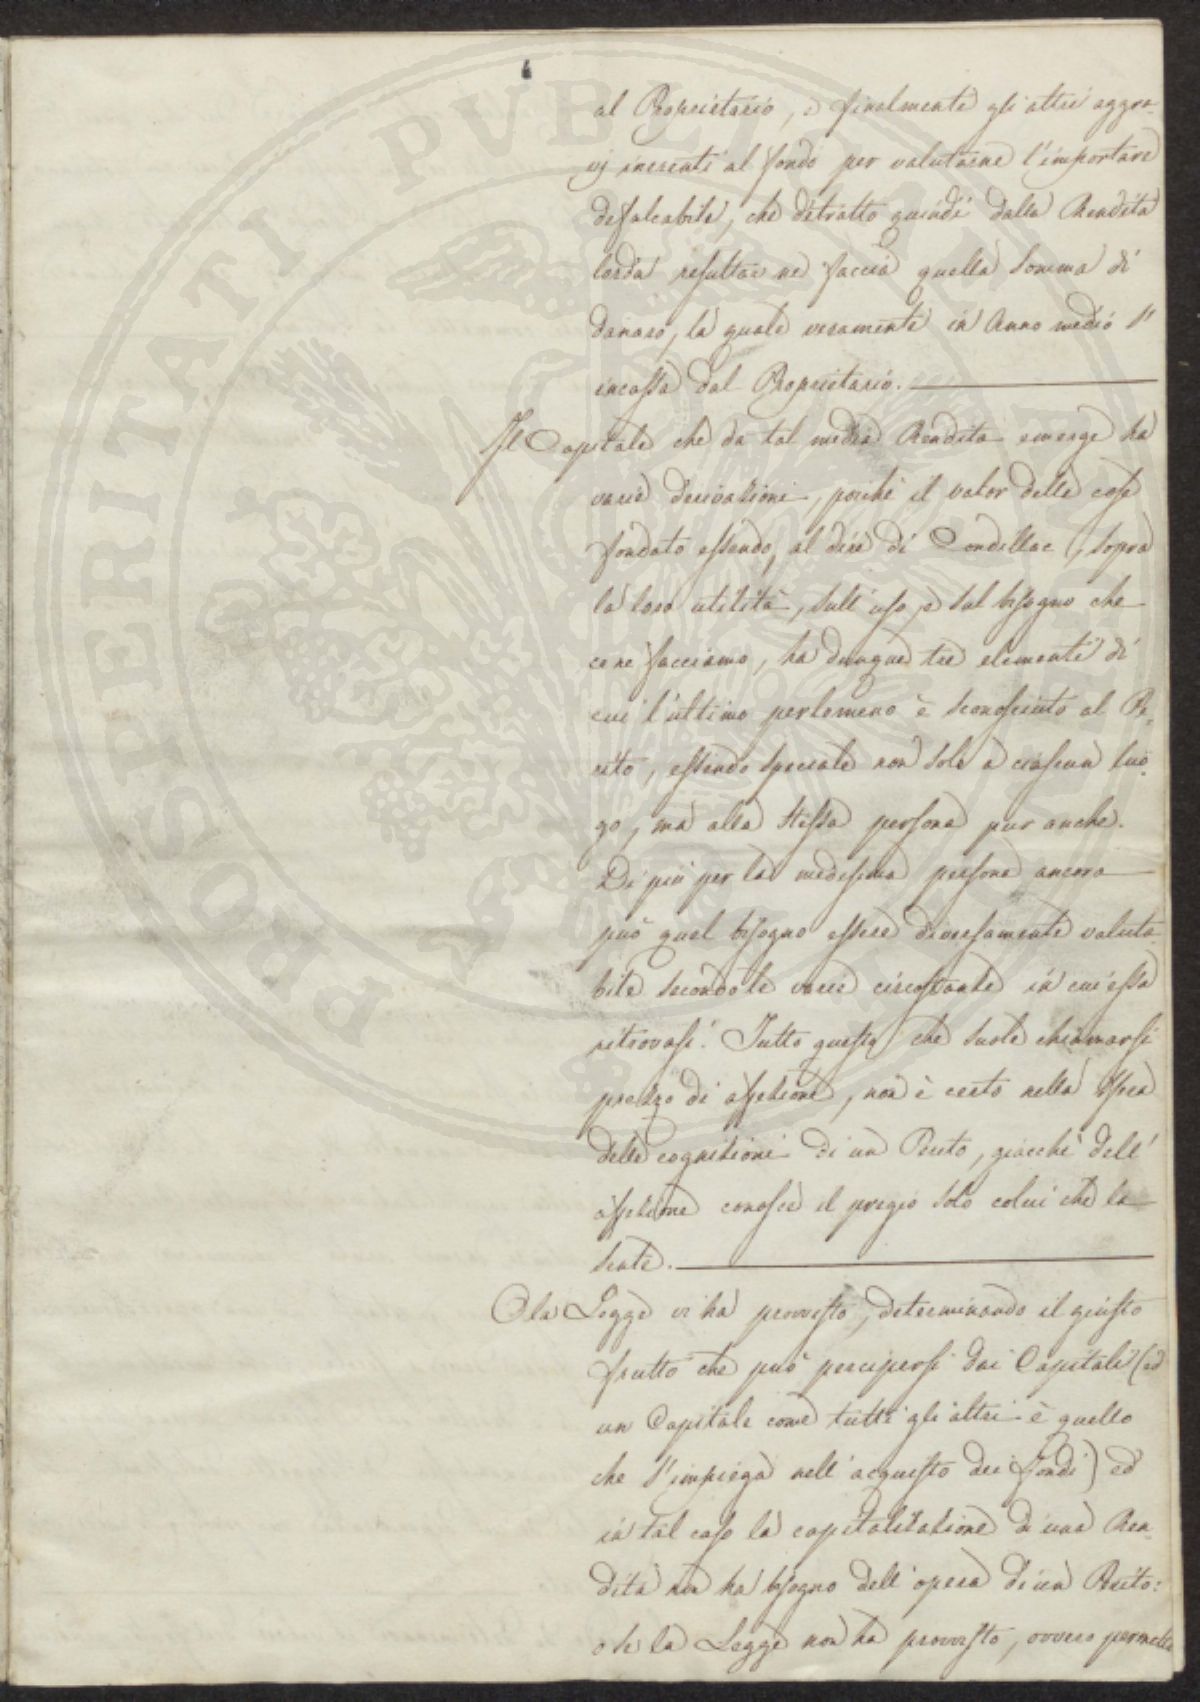 al Proprietario, e finalmente gli altri aggra-
vj inerenti al fondo per valutarne l'importare
defalcabile, che detratto quindi dalla Rendita
lorda resultar ne faccia quella Somma di
danaro, la quale veramente in Anno medio s'
incassa dal Proprietario.
Il Capitale che da tal media Rendita emerge ha
varie derivazioni, poichè il valor delle cose
fondato essendo, al dire di Condillac, sopra
la loro utilità, sull'uso, e sul bisogno che
ce ne facciamo, ha dunque tre elementi di
cui l'ultimo perlomeno è sconosciuto al Pe-
rito, essendo speciale non solo a ciascun luo-
go, ma alla stessa persona pur anche.
Di più per la medesima persona ancora
può quel bisogno essere diversamente valuta-
bile secondo le varie circostanze in cui essa
ritrovasi. Tutto questo che suole chiamarsi
prezzo di affezione, non è certo nella sfera
delle cognizioni di un Perito, giacchè dell'
affezione conosce il pregio solo colui che la
sente.
O la Legge vi ha provvisto, determinando il giusto
frutto che può percipersi dai Capitali (ed
un Capitale come tutti gli altri è quello
che s'impiega nell'acquisto dei fondi) ed
in tal caso la capitalizazione di una Ren-
dita non ha bisogno dell'opera di un Perito:
o se la Legge non ha provvisto, ovvero permette
PROSPERITATI PVBLICAE